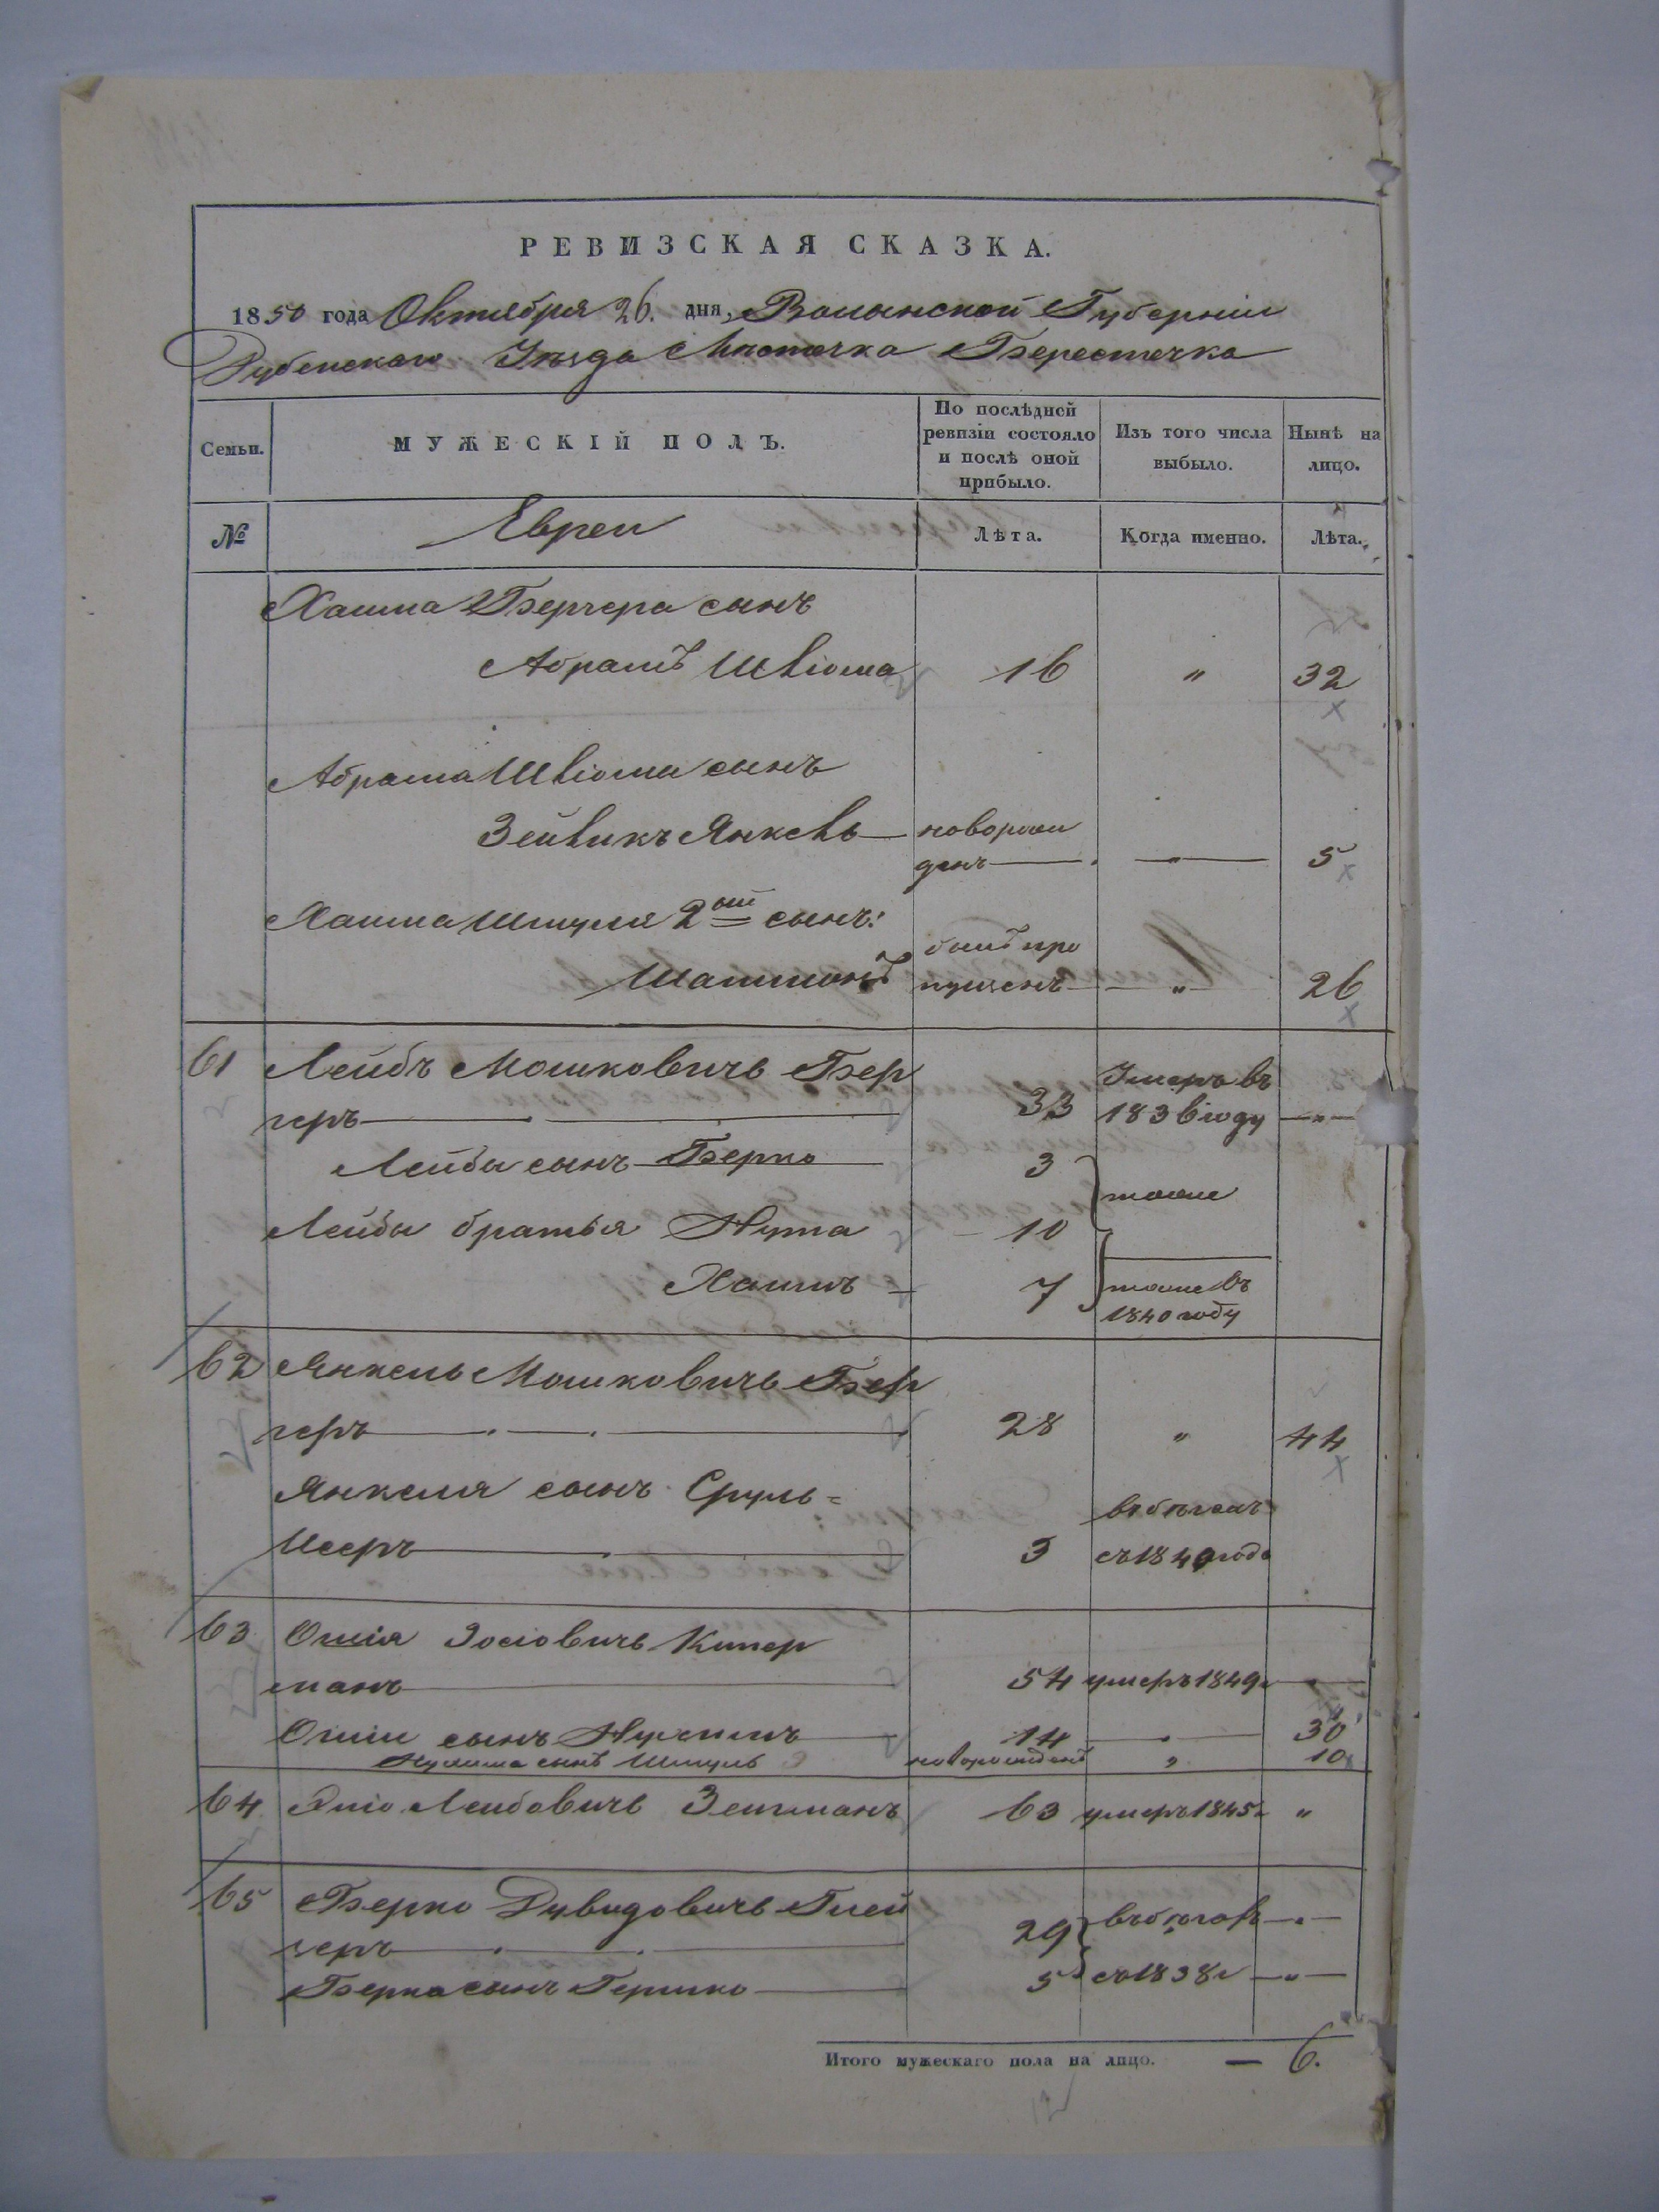 РЕВИЗСКАЯ СКАЗКА.
1850 года Октября 26. дня, Волынской Губерніи
Дубенскаго Уѣзда Мѣстечка Берестечка
Семьи.
МУЖЕСКІЙ ПОЛЪ.
По послѣдней
ревизіи состояло
и послѣ оной
прибыло.
Изъ того числа
выбыло.
Нынѣ на
лицо.
№
Евреи
Лѣта.
Когда именно.
Лѣта.
Хаима Бергера сынъ
Абрамъ Шліома 16 " 32
Абрама Шліомы сынъ
Зейликъ Янкель новорож
денъ — 5
Хаима Шмуля 2ой сынъ:
былъ про
пущенъ " 26
61 Лейбъ Мошковичъ Бер
геръ 33 Умеръ въ
1836 году "
Лейбы сынъ Берко 3
тоже
Лейбы братья Нута 10
Хаимъ 7 тоже въ
1840 году
62 Янкель Мошковичъ Бер
геръ 28 " 44
Янкеля сынъ Сруль=
Мееръ 3 въ бѣгахъ
съ 1840 года
63 Ошія Іосіовичъ Кипер
манъ 54 умеръ 1849г
Ошіи сынъ Нухимъ 14 — 30
Нухима сынъ Шмуль новорожденъ " 10
64 Лейбовичъ 63 умеръ 1845г "
65 Берко Дувидовичъ Глей
зеръ 29 въ бѣгах "
Берка сынъ Гершко 5 съ 1838г "
Итого мужескаго пола на лицо. — 6.